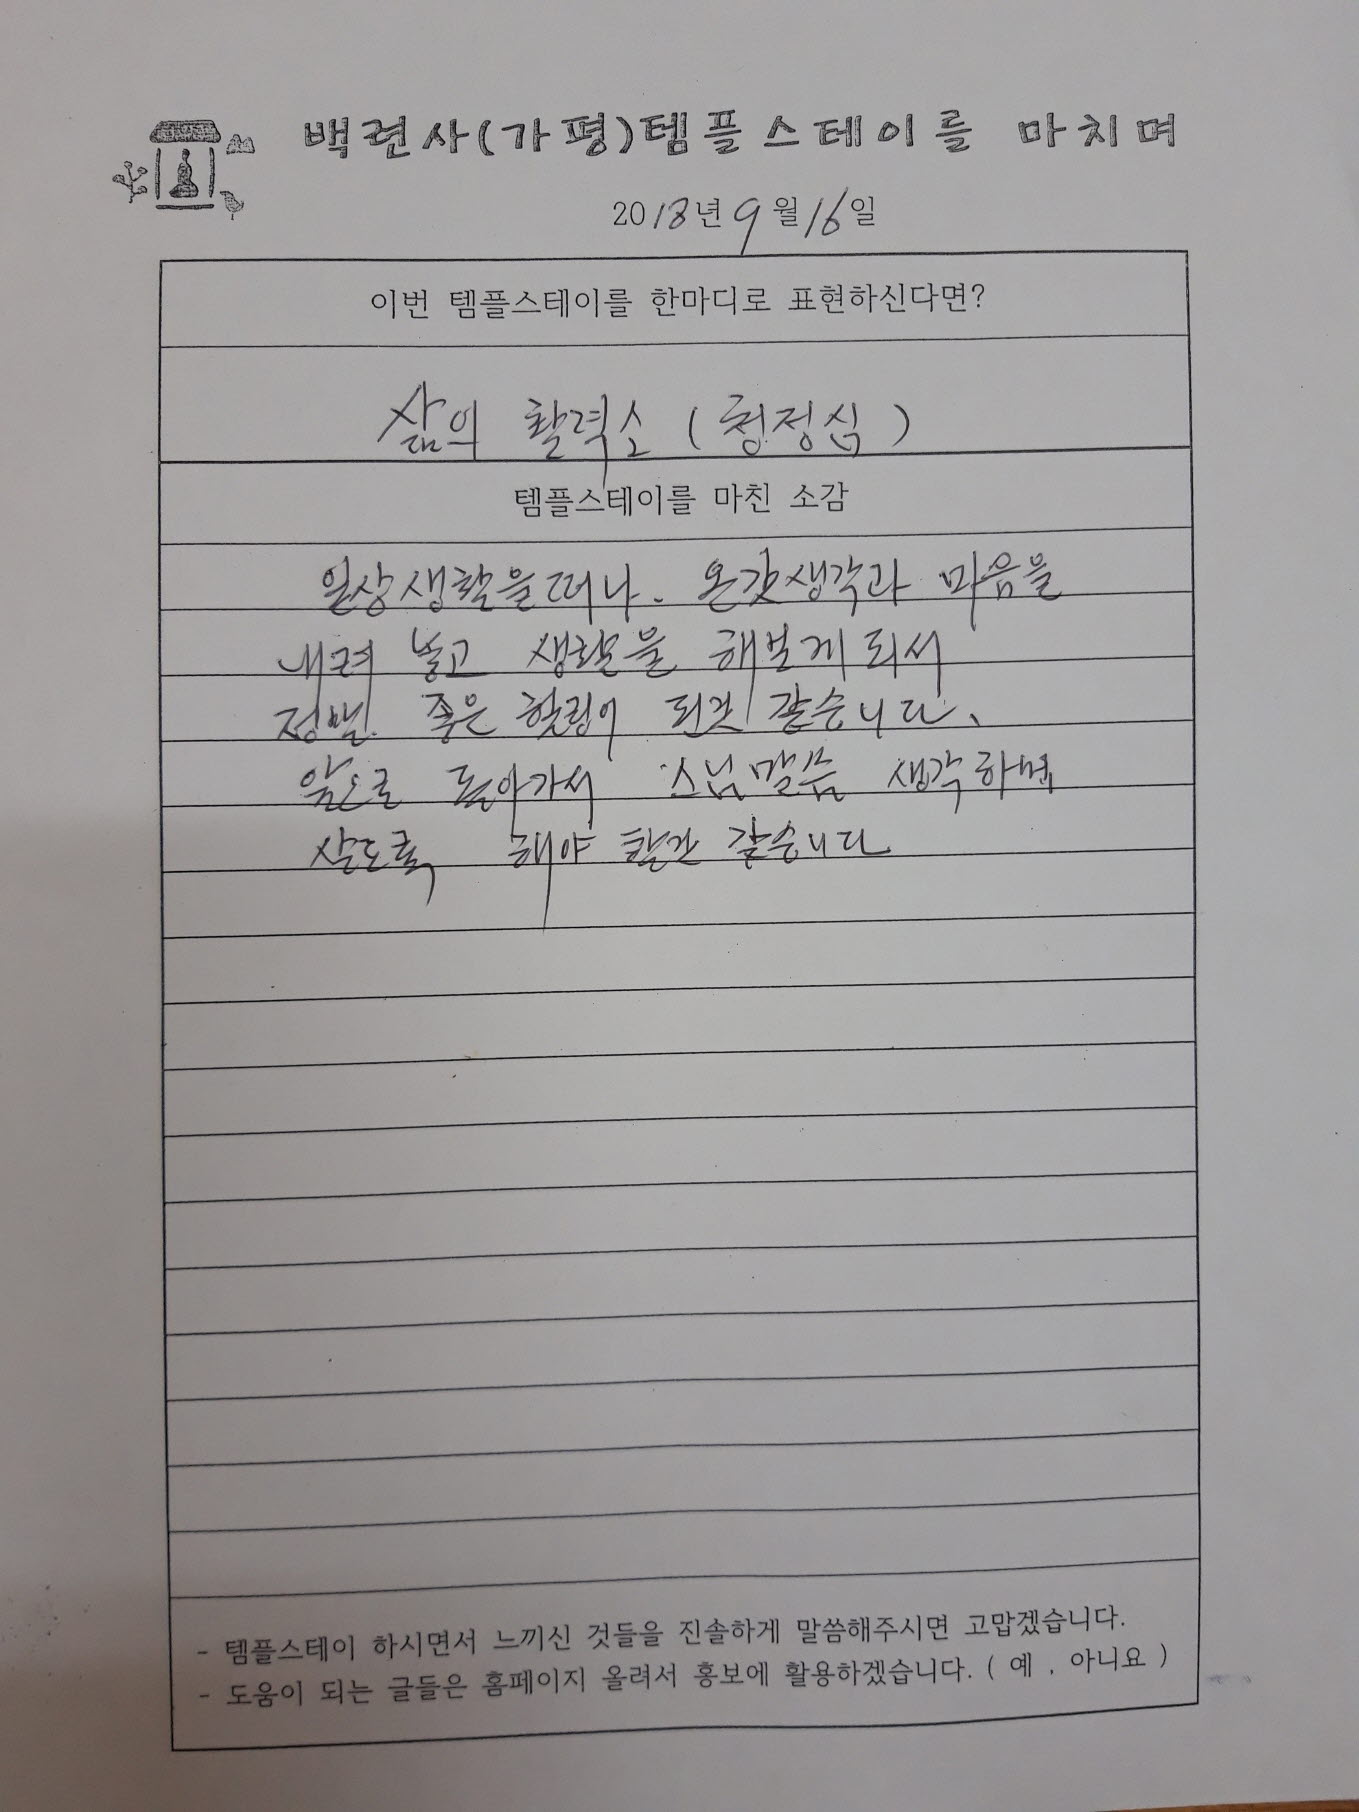 백련사(가평)템플스테이를 마치며
2018년 9월 16일
이번 템플스테이를 한마디로 표현하신다면?
삶의 활력소 (청정심)
템플스테이를 마친 소감
일상생활을 떠나. 온갖생각과 마음을
내려 놓고 생활을 해보게 되서
정말 좋은 힐링이 된것 같습니다.
앞으로 돌아가서 스님말씀 생각하며
살도록 해야 할것 같습니다
- 템플스테이 하시면서 느끼신 것들을 진솔하게 말씀해주시면 고맙겠습니다.
- 도움이 되는 글들은 홈페이지 올려서 홍보에 활용하겠습니다. ( 예 , 아니요 )